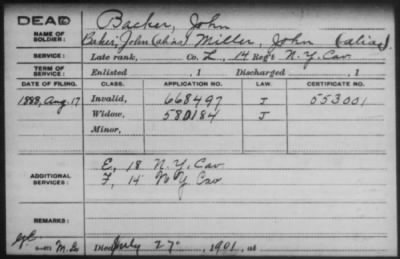 DEAD
Backer, John
NAME OF SOLDIER: Baker, John (alias) Miller, John (alias)
SERVICE: Late rank, Co. L, 14 Reg't N.Y. Cav.
TERM OF SERVICE: Enlisted , 1 Discharged , 1
DATE OF FILING. CLASS. APPLICATION NO. LAW. CERTIFICATE NO.
1888, Aug. 17 Invalid, 668497 J 553001
Widow, 580184 J
Minor,
E, 18 N.Y. Cav
ADDITIONAL SERVICES: F, 14 N Y Cav
REMARKS:
Died July 27 1901, at